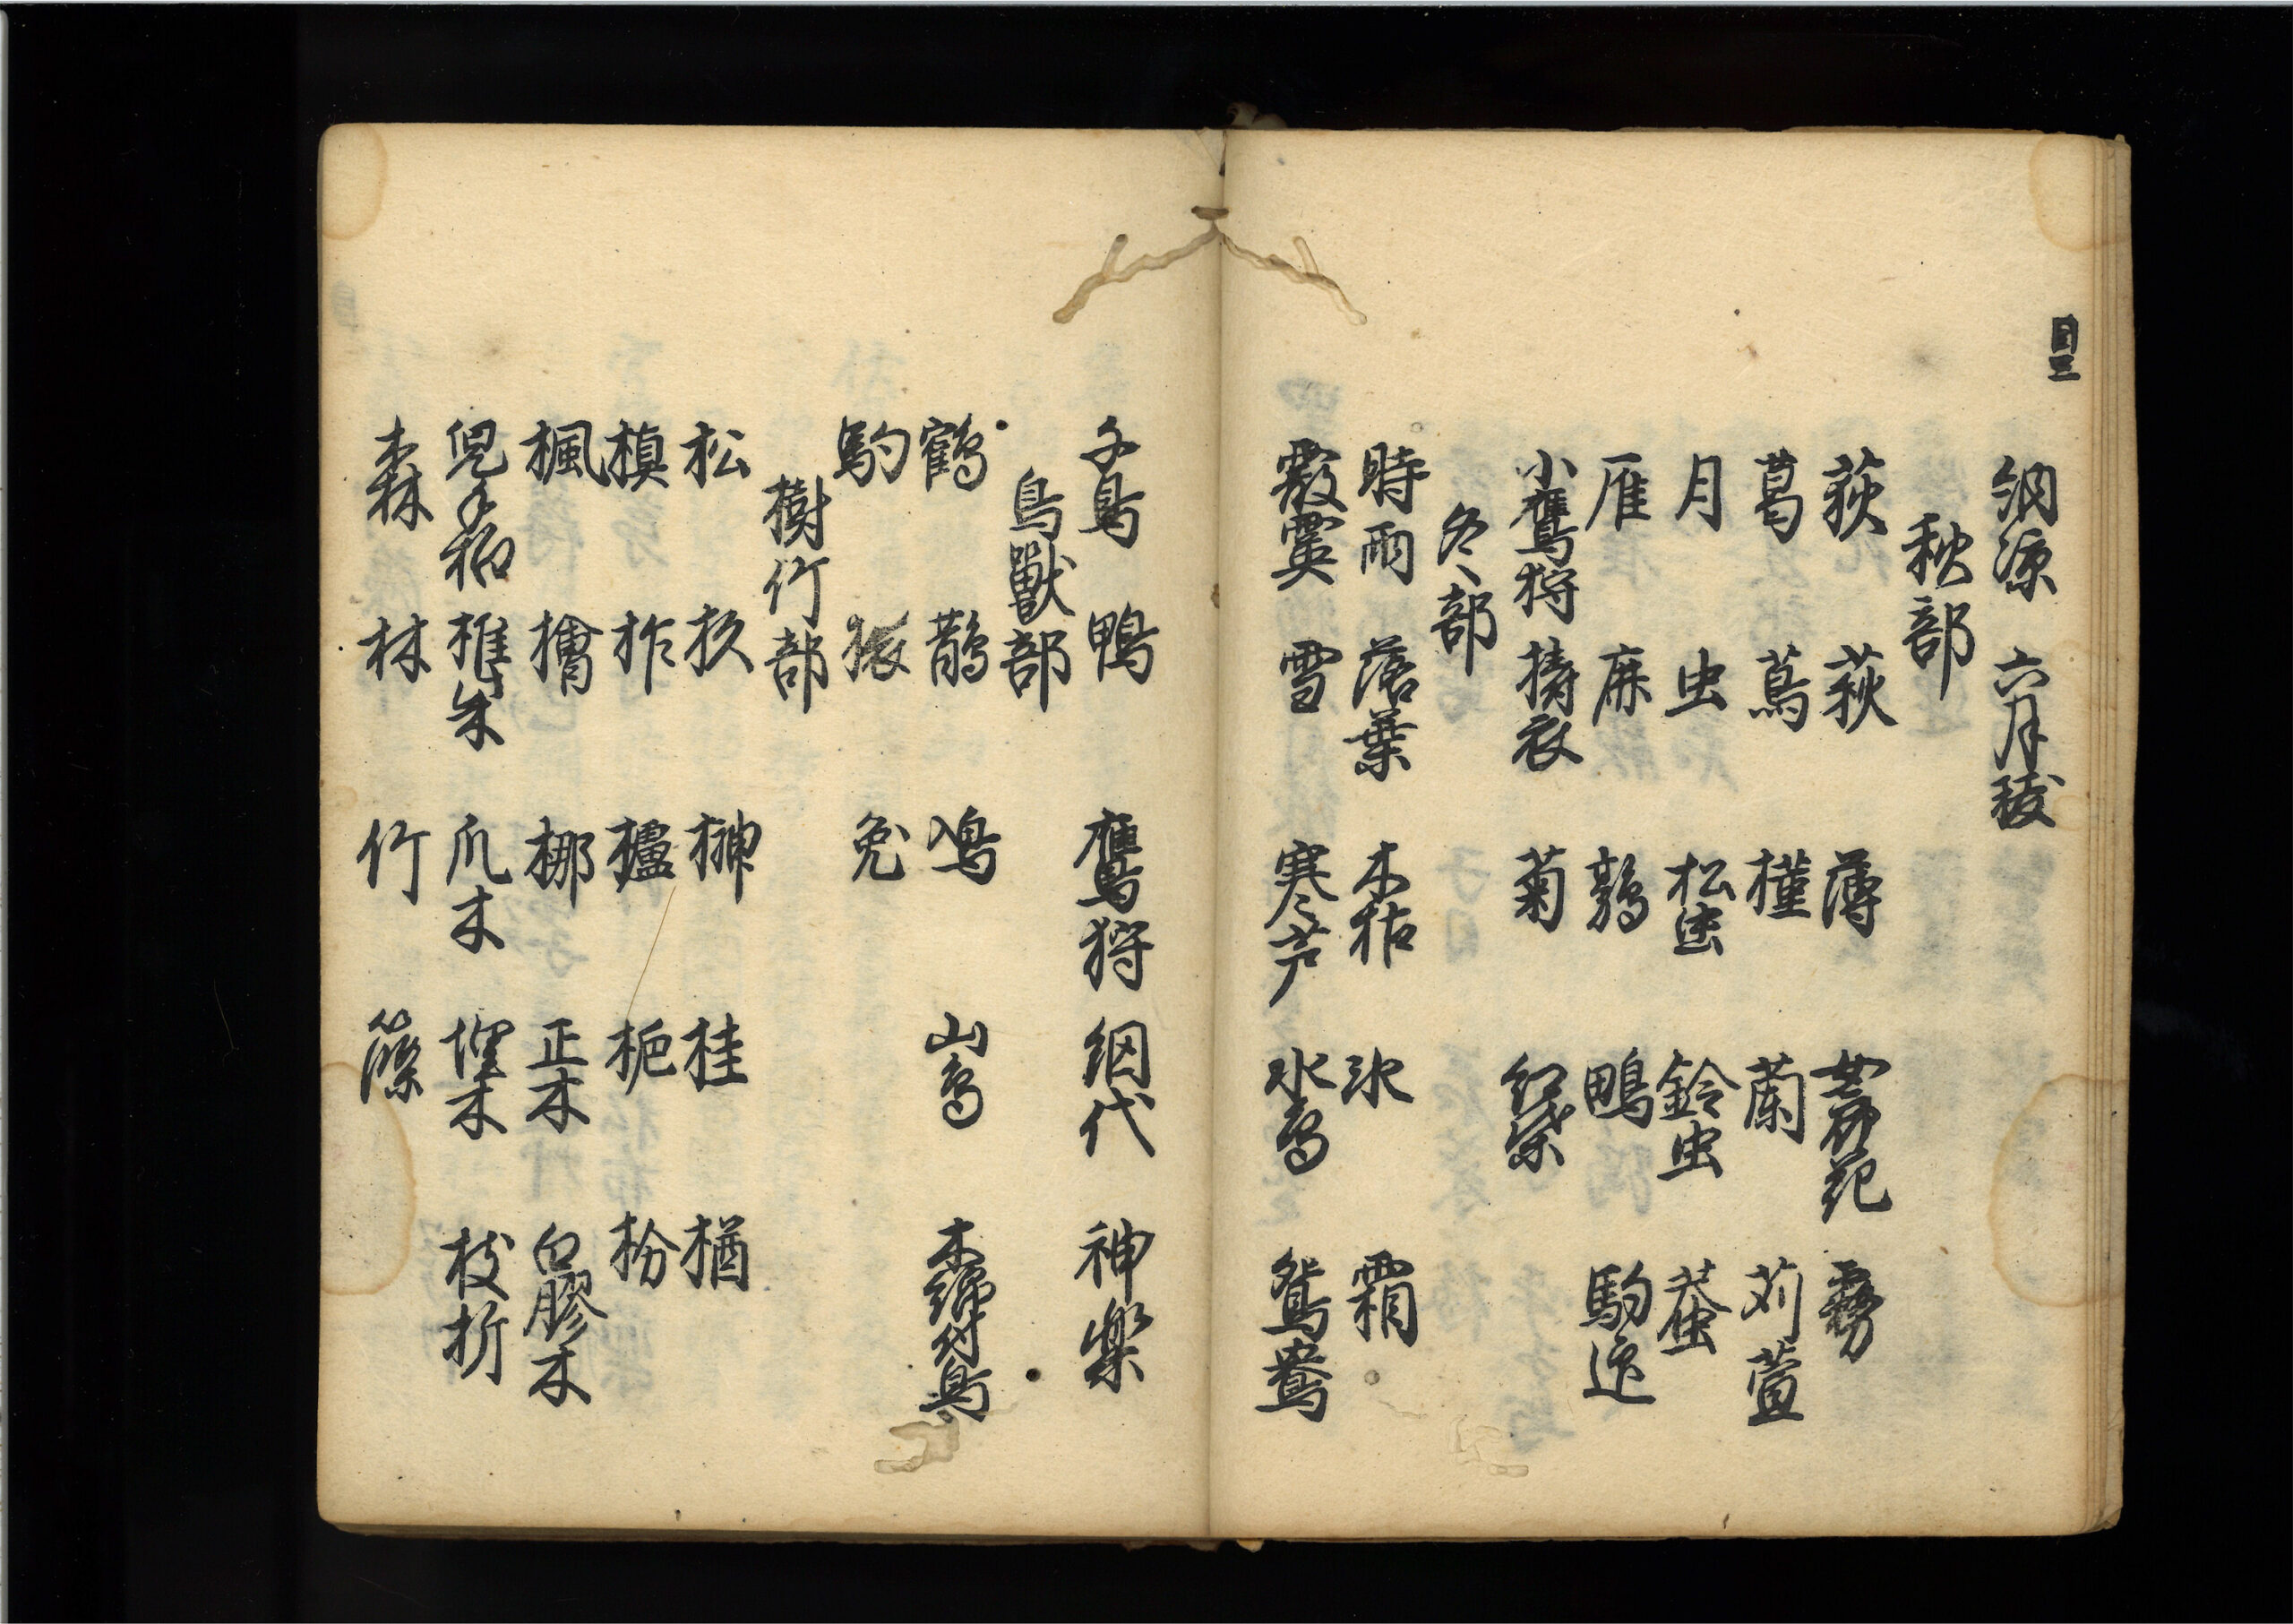 目三
納涼 六月祓
秋部
荻 萩 薄 女郎花 霧
葛 蔦 槿 蘭 苅萱
月 虫 松虫 鈴虫 蛬
雁 麻 鶉 鴫 駒迎
小鷹狩 擣衣 菊 紅葉
冬部
時雨 落葉 木枯 氷 霜
霰霙 雪 寒芦 水鳥 鴛鴦
千鳥 鴨 鷹狩 網代 神楽
鳥獣部
鶴 鵲 鳰 山鳥 木綿付鳥
駒 猿 兎
樹竹部
松 杉 榊 桂 楢
槙 柞 櫨 枌
楓 檜 梛 正木 白膠木
児手柏 椎柴 爪木 埋木 枝折
森 林 竹 篠